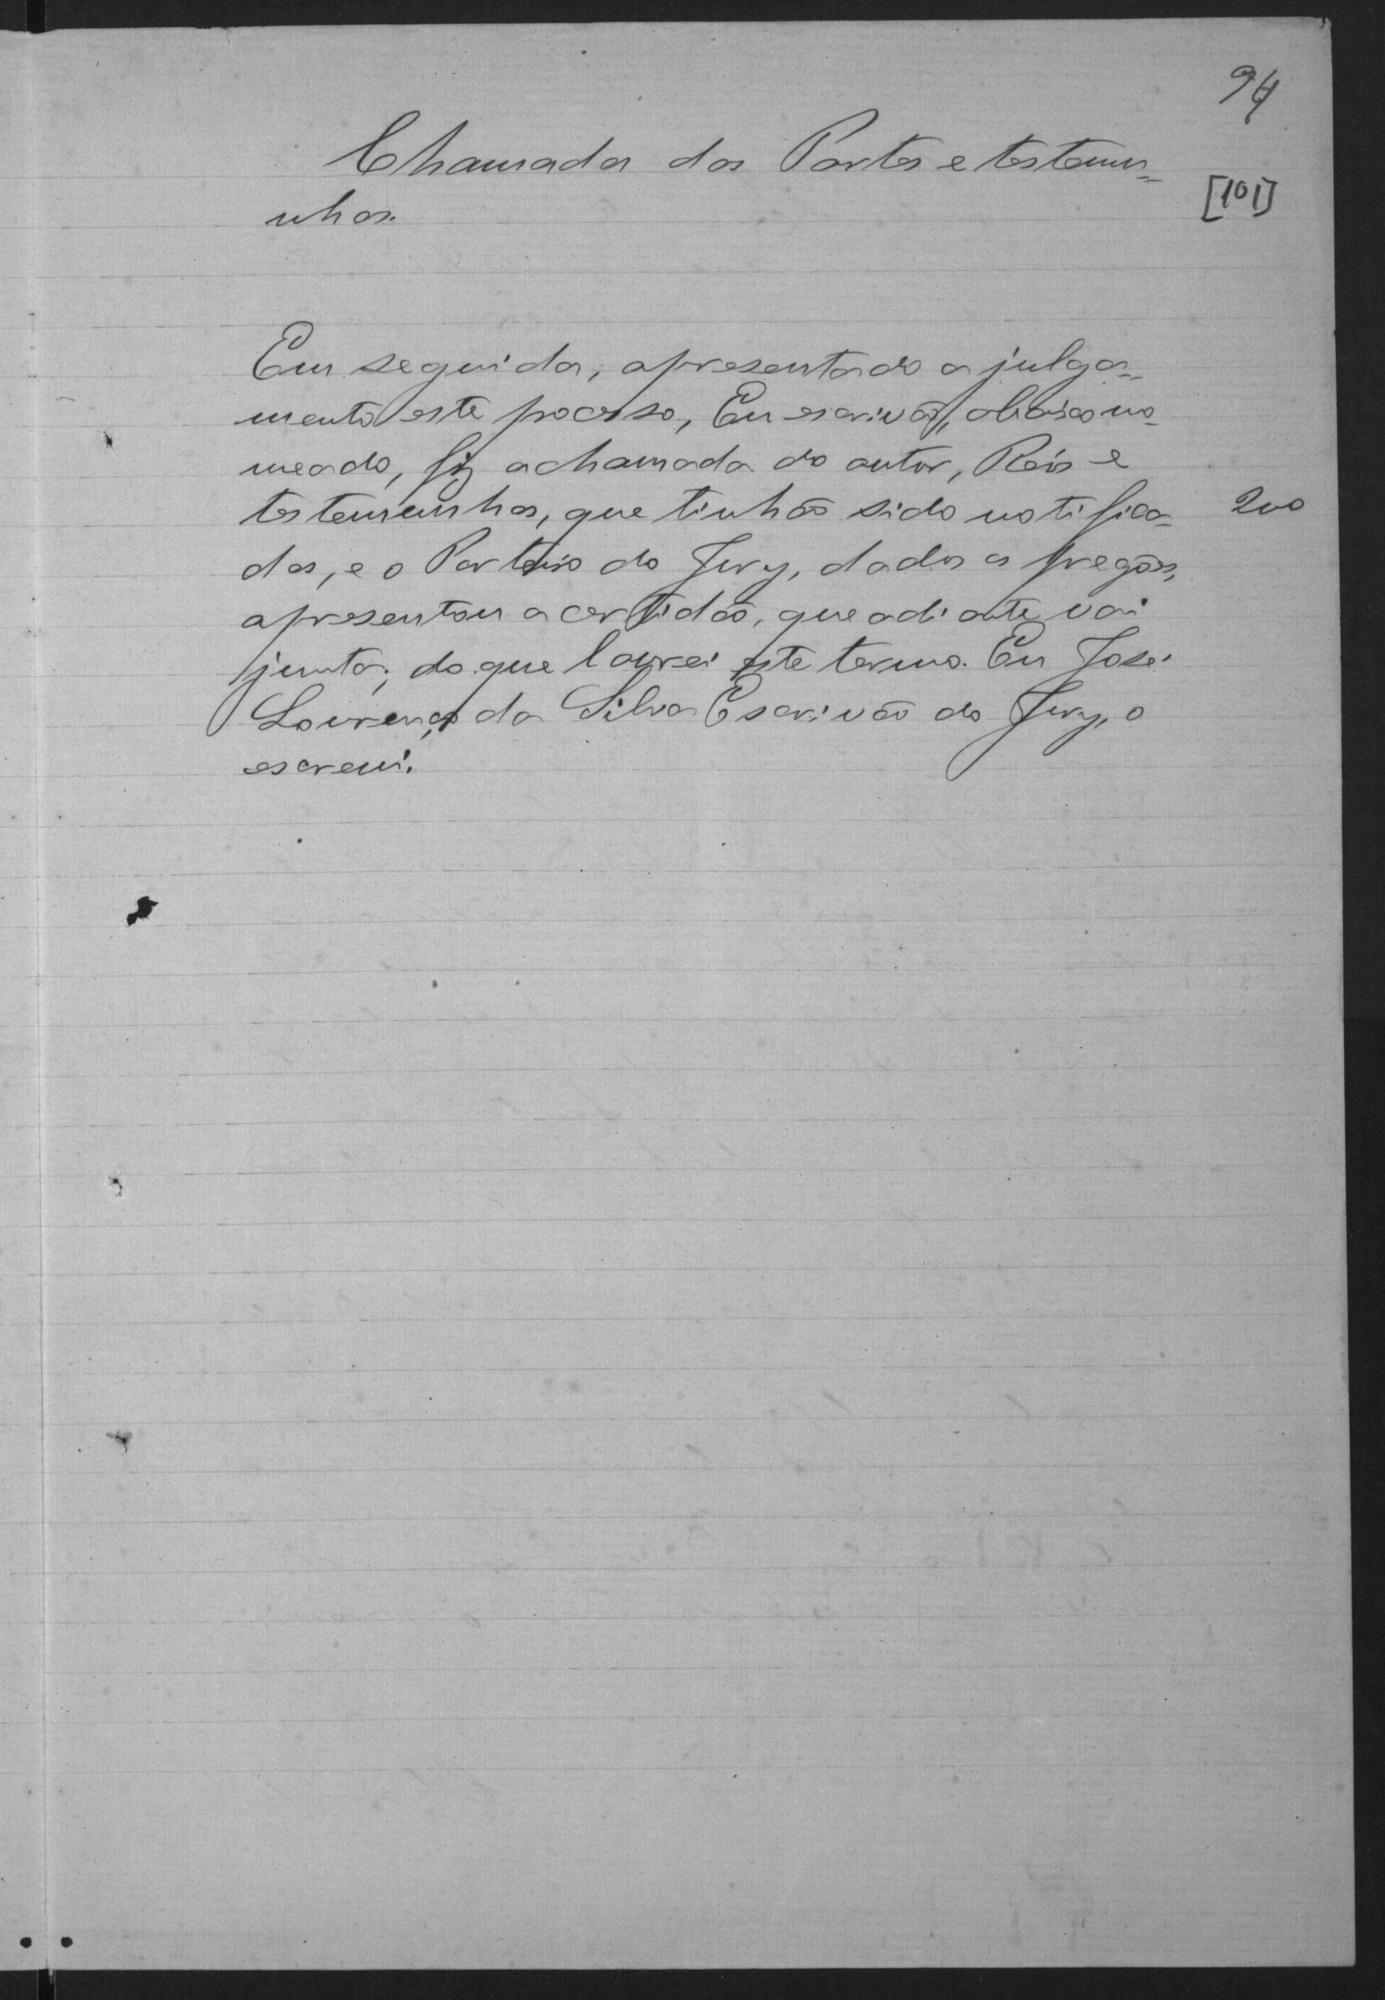 94
[101]
Chamada das Partes e testemu=
nhas.
Em seguida, apresentado a julga=
mento este processo, Eu escrivão, abaixo no=
meado, fiz a chamada do autor, Réos e
testemunhas, que tinhão sido notifica=
das, e o Porteiro do Jury, dados os pregões,
apresentou a certidão, que adiante vai
junta; do que lavrei este termo. Eu José
Lourenço da Silva Escrivão do Jury, o
escrevi.
200